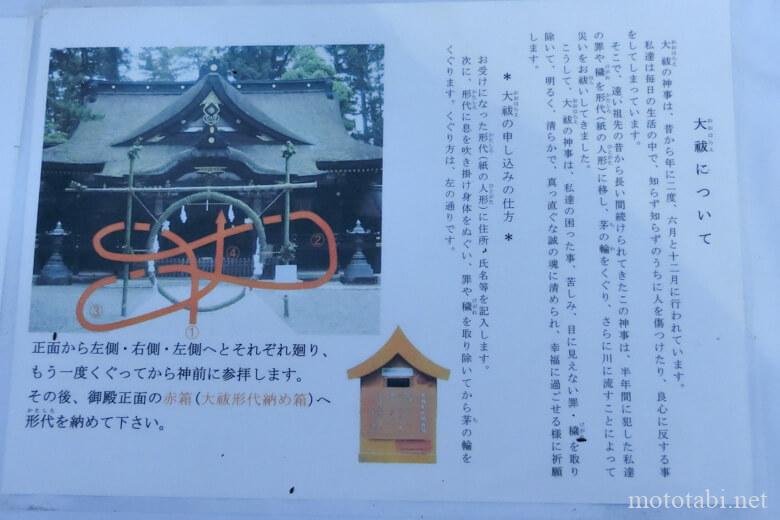 大祓について
大祓の神事は、昔から年に二度、六月と十二月に行われています。
私達は毎日の生活の中で、知らず知らずのうちに人を傷つけたり、良心に反する事
をしてしまっています。
そこで、遠い祖先の昔から長い間続けられてきたこの神事は、半年間に犯した私達
の罪や穢を形代(紙の人形)に移し、茅の輪をくぐり、さらに川に流すことによって
災いをお祓いしてきました。
こうして、大祓の神事は、私達の困った事、苦しみ、目に見えない罪・穢を取り
除いて、明るく、清らかで、真っ直ぐな誠の魂に清められ、幸福に過ごせる様に祈願
します。
* 大祓の申し込みの仕方 *
お受けになった形代(紙の人形)に住所、氏名等を記入します。
次に、形代に息を吹き掛け身体をぬぐい、罪や穢を取り除いてから茅の輪を
くぐります。くぐり方は、左の通りです。
①
②
③
④
正面から左側・右側・左側へとそれぞれ廻り、
もう一度くぐってから神前に参拝します。
その後、御殿正面の赤箱(大祓形代納め箱)へ
形代を納めて下さい。
mototabi.net